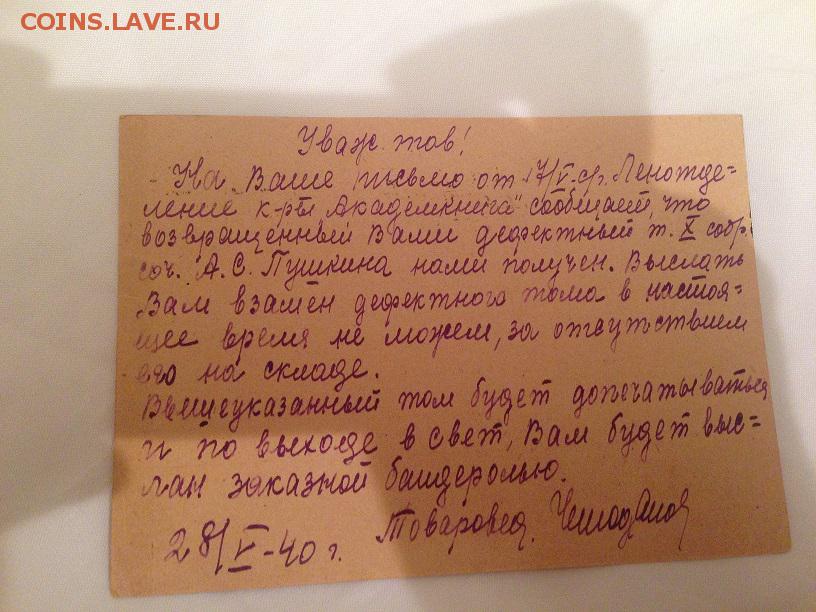 COINS.LAVE.RU
Уваж. тов!
На Ваше письмо от 17/V-с/г. Ленотде=
ление к-ры „Академкнига" сообщает, что
возвращенный Вами дефектный т. X собр.
соч. А.С. Пушкина нами получен. Выслать
Вам взамен дефектного тома в настоя=
щее время не можем, за отсутствием
его на складе.
Вышеуказанный том будет допечатываться
и по выходе в свет, Вам будет выс=
лан заказной бандеролью.
28/V-40 г. Товаровед.